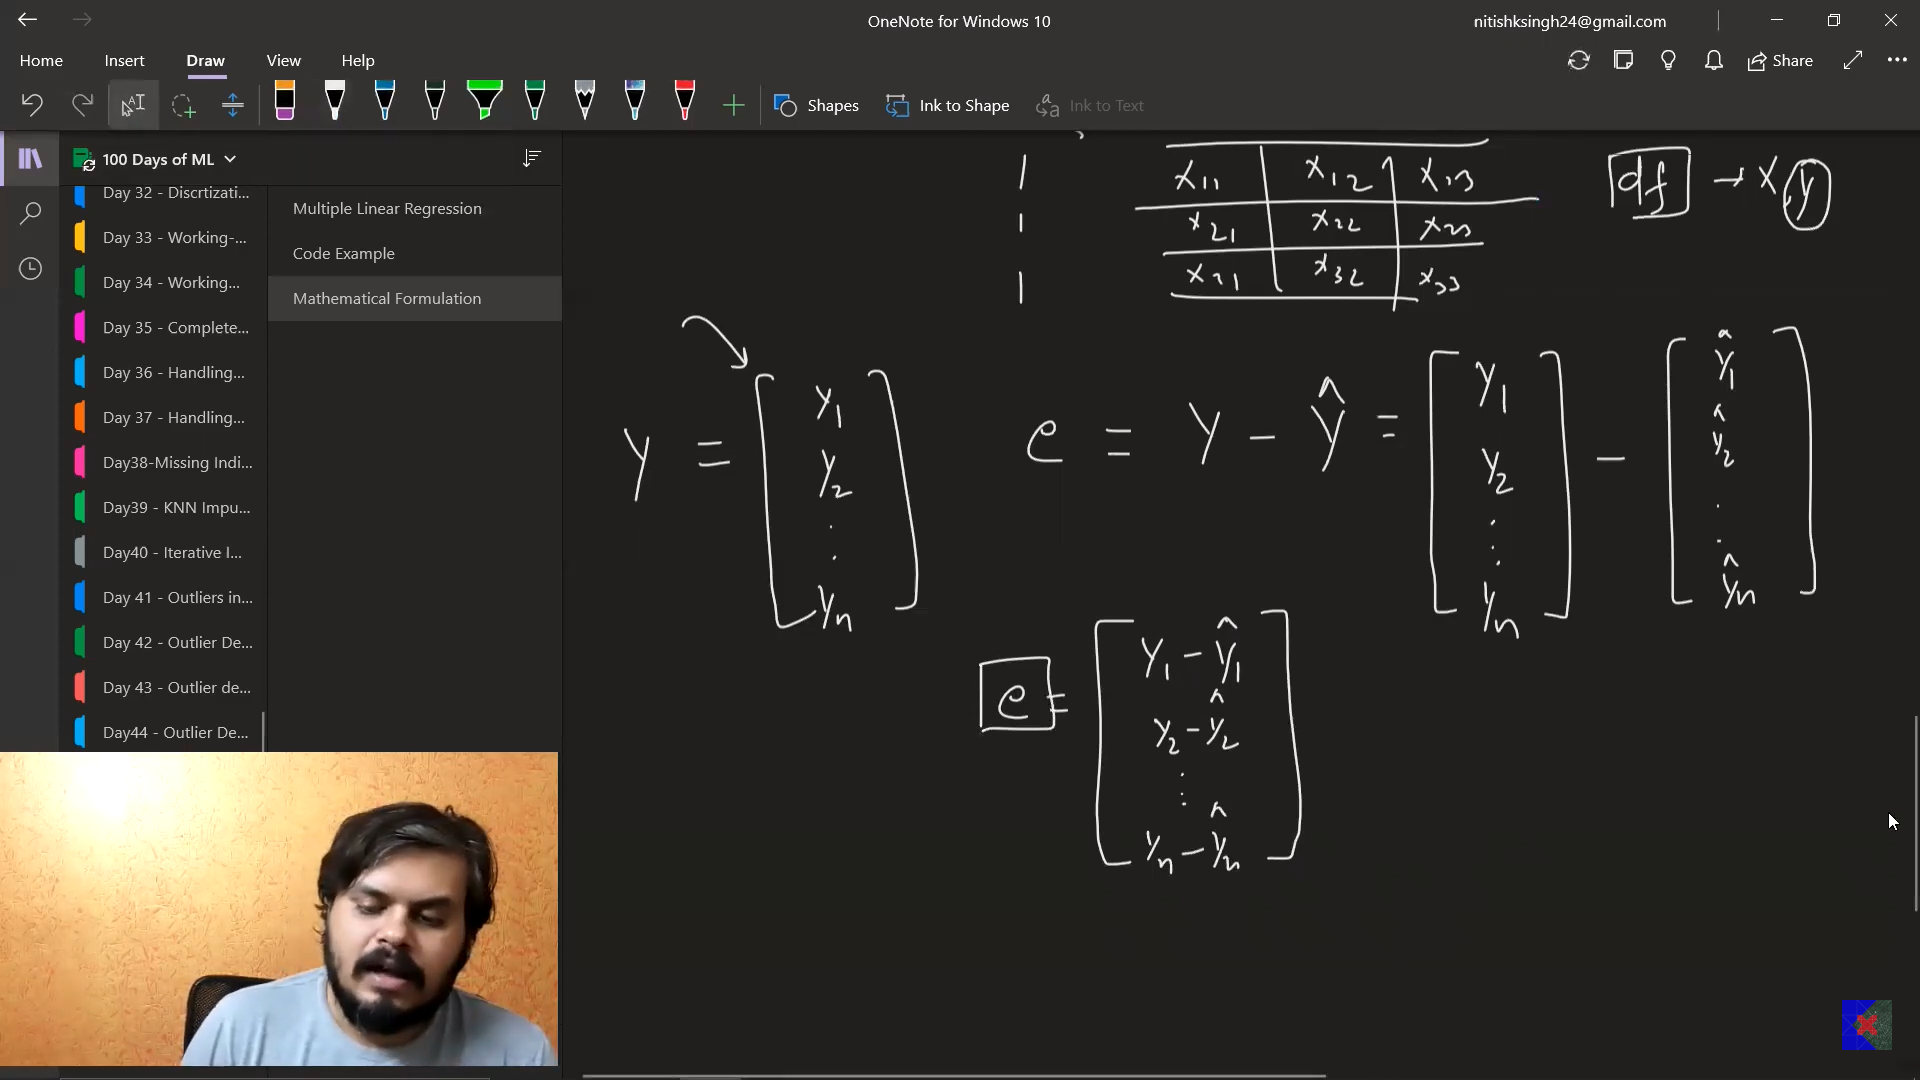 OneNote for Windows 10
nitishksingh24@gmail.com
Home Insert Draw View Help
Share
Shapes
Ink to Shape
Ink to Text
100 Days of ML
Day 32 - Discrtizati...
Day 33 - Working-...
Day 34 - Working...
Day 35 - Complete...
Day 36 - Handling...
Day 37 - Handling...
Day38-Missing Indi...
Day39 - KNN Impu...
Day40 - Iterative I...
Day 41 - Outliers in...
Day 42 - Outlier De...
Day 43 - Outlier de...
Day44 - Outlier De...
Multiple Linear Regression
Code Example
Mathematical Formulation
1 x11 x12 x13
1 x21 x22 x23
1 x31 x32 x33
df → X, y
y = [y1 y2 . . yn]
e = y - ŷ = [y1 y2 . . yn] - [ŷ1 ŷ2 . . ŷn]
e = [y1 - ŷ1
y2 - ŷ2
:
yn - ŷn]